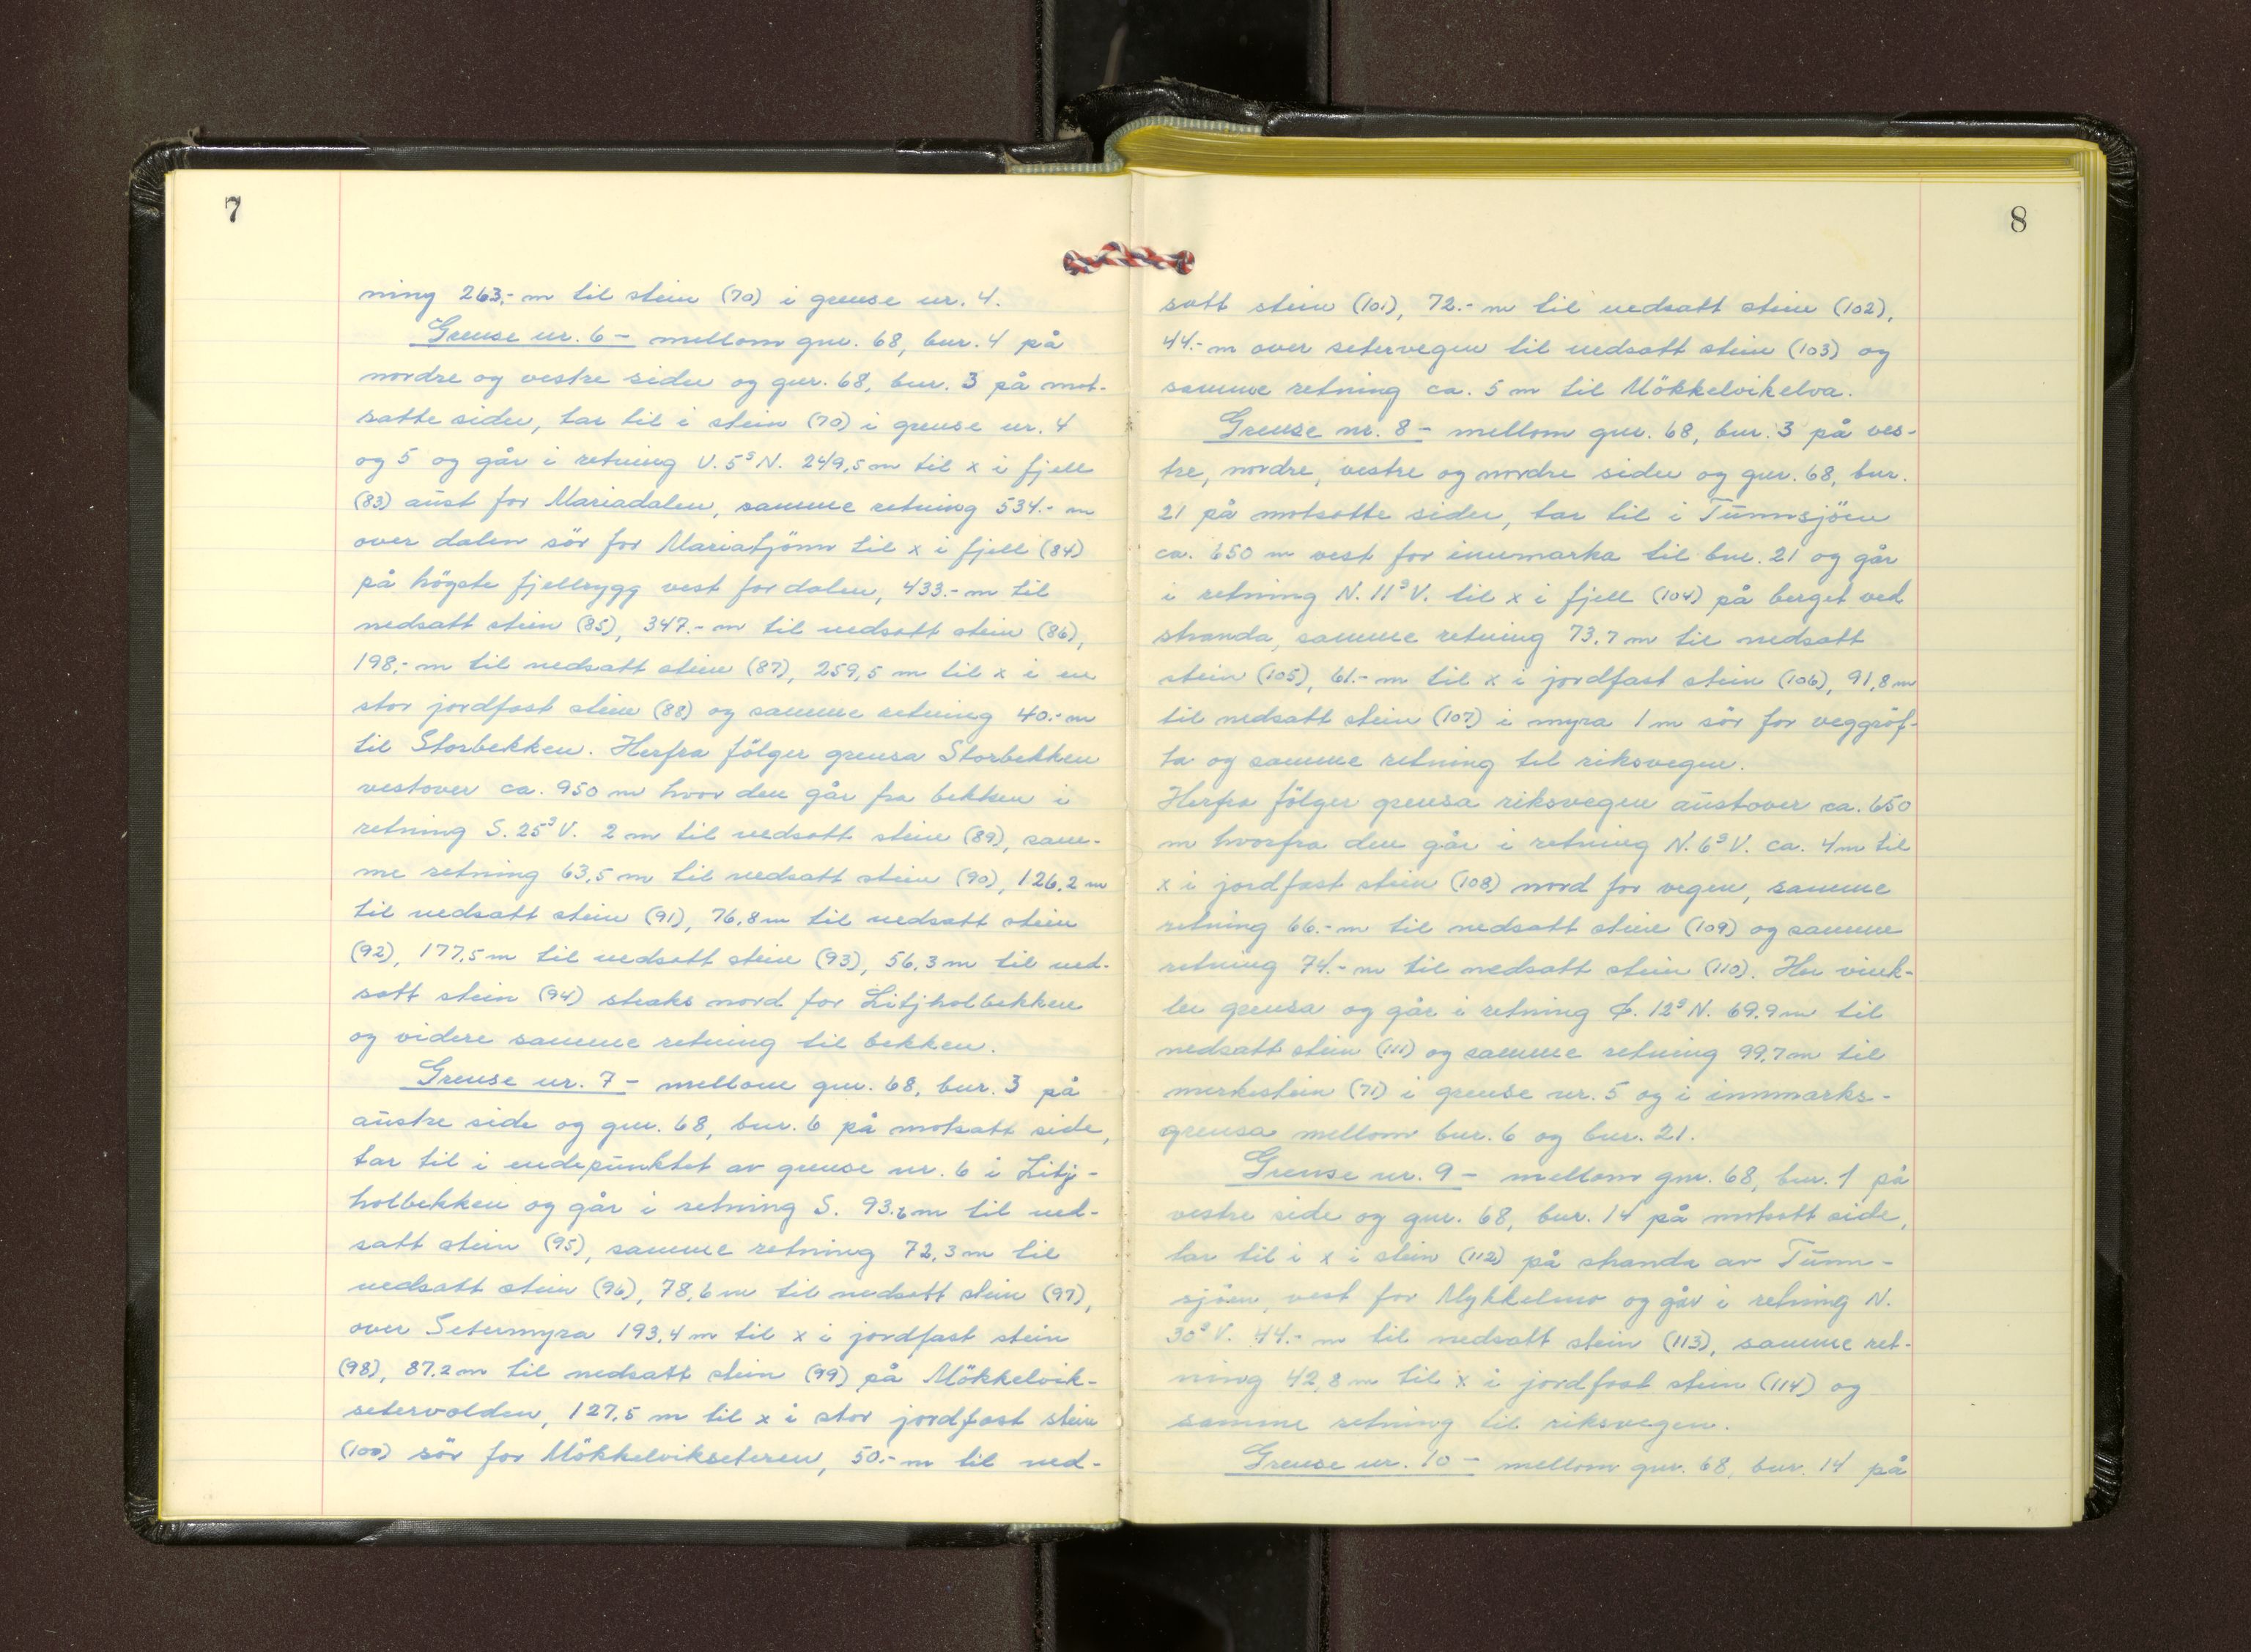 7
ning 263,- m til stein (70) i grense nr. 4.
Grense nr. 6 - mellom gnr. 68, bnr. 4 på
nordre og vestre siden og gnr. 68, bnr. 3 på mot-
satte siden, tar til i stein (70) i grense nr. 4
og 5 og går i retning V. 5ᵍ N. 249,5 m til x i fjell
(83) aust for Mariadalen, samme retning 534.- m
over dalen sör for Mariatjönn til x i fjell (84)
på högste fjellrygg vest for dalen, 433.- m til
nedsatt stein (85), 347.- m til nedsatt stein (86),
198,- m til nedsatt stein (87), 259,5 m til x i en
stor jordfast stein (88) og samme retning 40.- m
til Storbekken. Herfra fölger grensa Storbekken
vestover ca. 950 m hvor den går fra bekken i
retning S. 25ᵍ V. 2 m til nedsatt stein (89), sam-
me retning 63,5 m til nedsatt stein (90), 126,2 m
til nedsatt stein (91), 76,8 m til nedsatt stein
(92), 177,5 m til nedsatt stein (93), 56,3 m til ned-
satt stein (94) straks nord for Litjholbekken
og videre samme retning til bekken.
Grense nr. 7 - mellom gnr. 68, bnr. 3 på
austre side og gnr. 68, bnr. 6 på motsatt side,
tar til i endepunktet av grense nr. 6 i Litj-
holbekken og går i retning S. 93.6 m til ned-
satt stein (95), samme retning 72,3 m til
nedsatt stein (96), 78,6 m til nedsatt stein (97),
over Setermyra 193,4 m til x i jordfast stein
(98), 87.2 m til nedsatt stein (99) på Mökkelvik-
setervolden, 127,5 m til x i stor jordfast stein
(100) sör for Mökkelvikseteren, 50.- m til ned-
8
satt stein (101), 72.- m til nedsatt stein (102),
44.- m over setervegen til nedsatt stein (103) og
samme retning ca. 5 m til Mökkelvikelva.
Grense nr. 8 - mellom gnr. 68, bnr. 3 på ves-
tre, nordre, vestre og nordre siden og gnr. 68, bnr.
21 på motsatte siden, tar til i Tunnsjöen
ca. 650 m vest for innmarka til bnr. 21 og går
i retning N. 11ᵍ V. til x i fjell (104) på berget ved
stranda, samme retning 73,7 m til nedsatt
stein (105), 61.- m til x i jordfast stein (106), 91,8 m
til nedsatt stein (107) i myra 1 m sör for veggröf-
ta og samme retning til riksvegen.
Herfra fölger grensa riksvegen austover ca. 650
m hvorfra den går i retning N. 6ᵍ V. ca. 4 m til
x i jordfast stein (108) nord for vegen, samme
retning 66.- m til nedsatt stein (109) og samme
retning 74.- m til nedsatt stein (110). Her vink-
ler grensa og går i retning Ø. 12ᵍ N. 69,9 m til
nedsatt stein (111) og samme retning 99,7 m til
merkestein (71) i grense nr. 5 og i innmarks-
grensa mellom bnr. 6 og bnr. 21.
Grense nr. 9 - mellom gnr. 68, bnr. 1 på
vestre side og gnr. 68, bnr. 14 på motsatt side,
tar til i x i stein (112) på stranda av Tunn-
sjöen, vest for Mykkelmo og går i retning N.
30ᵍ V. 44.- m til nedsatt stein (113), samme ret-
ning 42,8 m til x i jordfast stein (114) og
samme retning til riksvegen.
Grense nr. 10 - mellom gnr. 68, bnr. 14 på